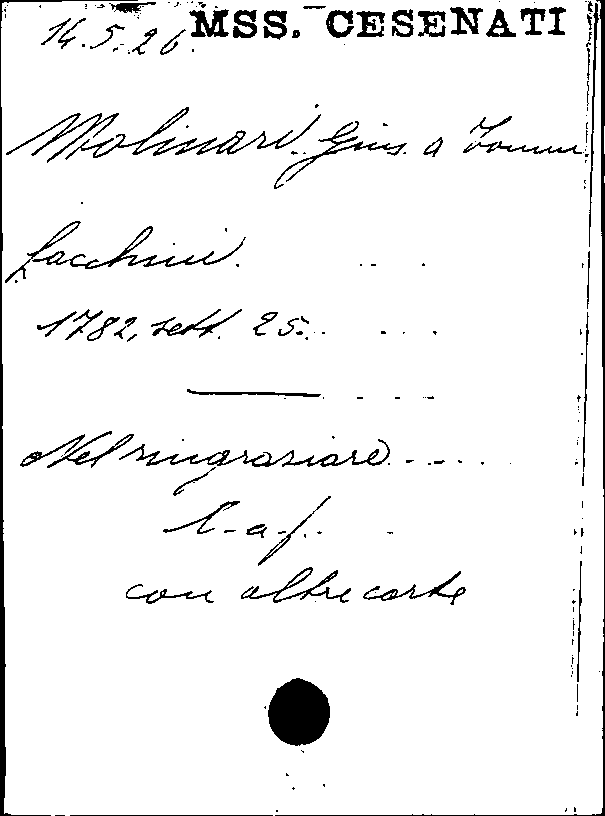 14.5.26. MSS. CESENATI
Molinari Gius. a Tomm.
Facchini.
1782, sett. 25.
Nel ringraziare.....
l. a. f.
con altre carte